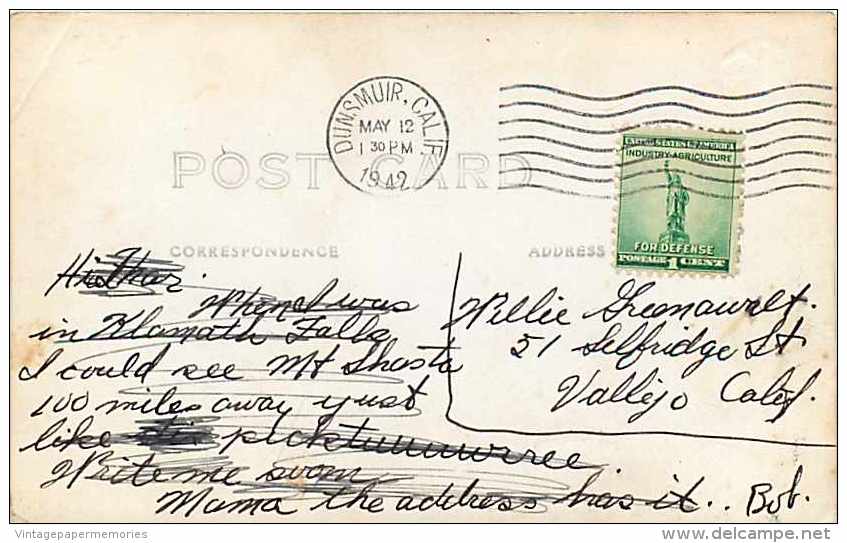 DUNSMUIR, CALIF.
MAY 12
1 30 PM
1942
POST CARD
UNITED STATES OF AMERICA
INDUSTRY-AGRICULTURE
FOR DEFENSE
POSTAGE 1 CENT
CORRESPONDENCE
ADDRESS
Willie Greenawalt.
51 Selfridge St
Vallejo Calif.
When I was
in Klamath Falls
I could see Mt Shasta
100 miles away yust
like picktuuuwree
Write me soon
Mama the address has it.. Bob.
Vintagepapermemories
delcampe.net